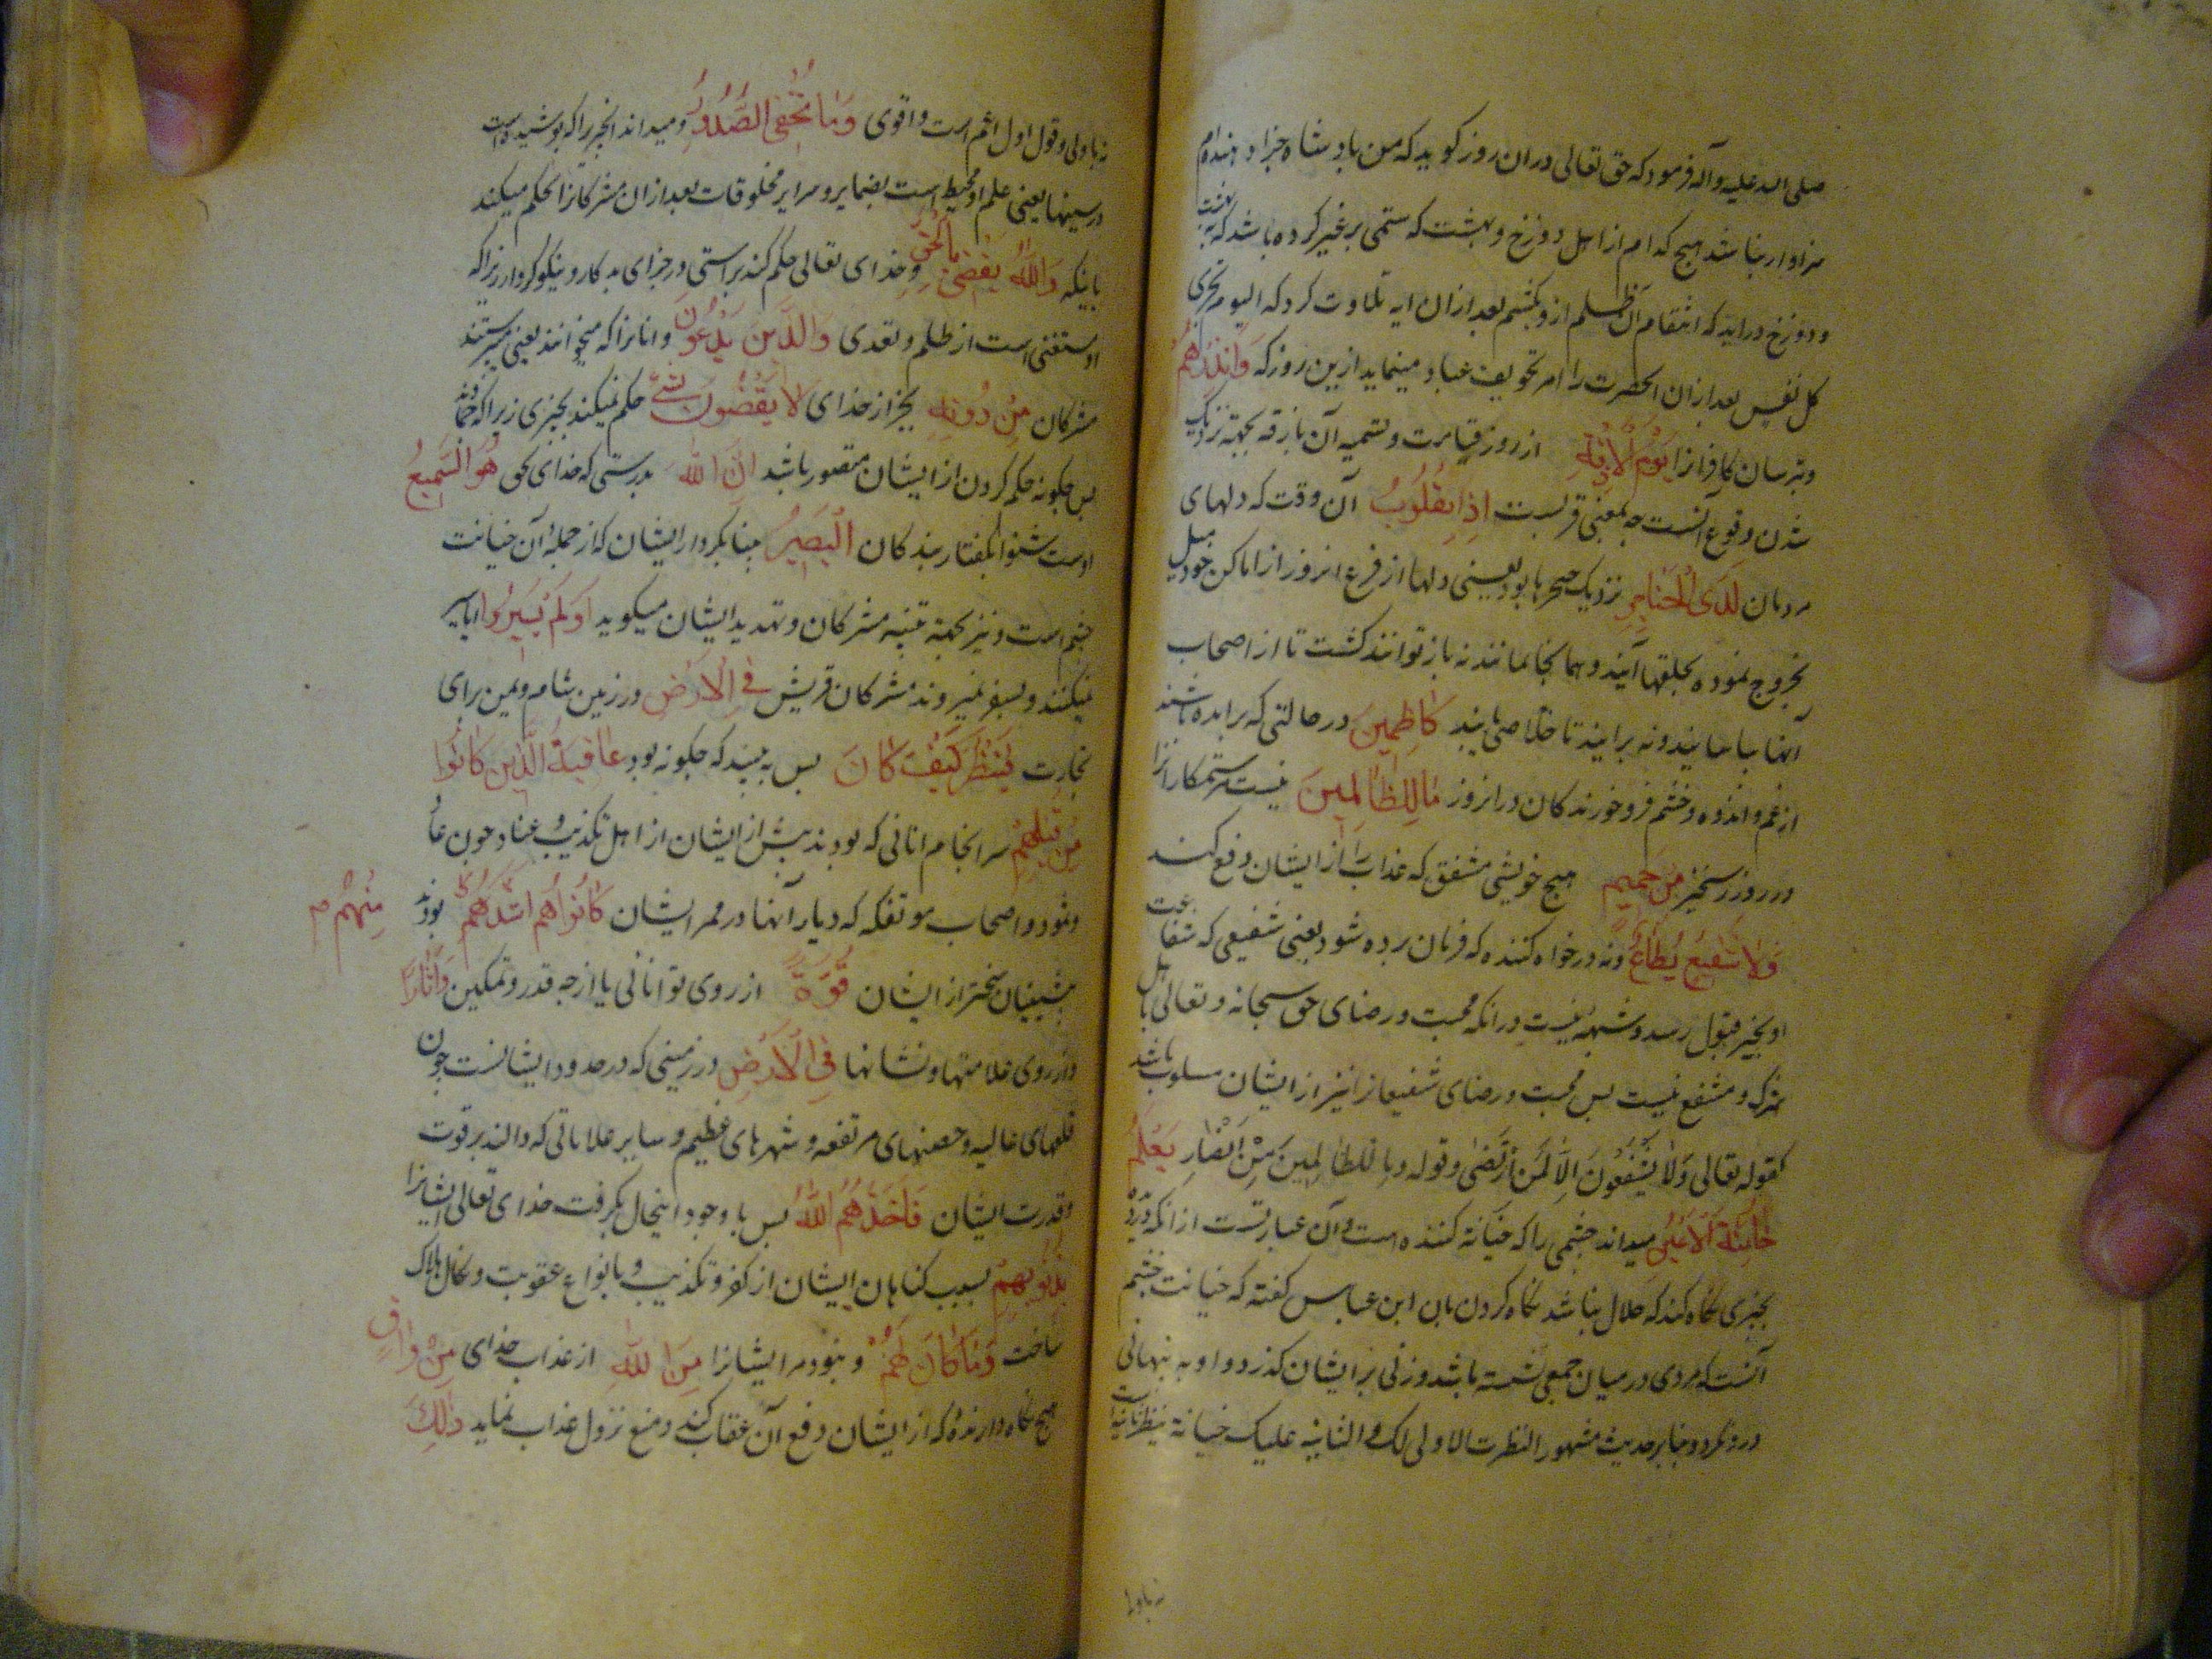 صلی الله علیه و آله فرمود که حق تعالی دران روز کوید که من بادشاه جزا دهنده ام
سزاوار نباشد هیچ کدام از اهل دوزخ و بهشت که ستمی بر غیر کرده باشد که به بهشت
و دوزخ دراید که انتقام آن ظلم ازو بکشم بعد ازان ایه تلاوت کرد که الیوم تجزی
کل نفس بعد ازان الحضرت را امر تخویف عباد مینماید ازین روز که وَاَنْذِرْهُمْ
و بترسان کافرانرا یَوْمَ الْاٰزِفَةِ از روز قیامت و تسمیه آن بازفه بجهة نزدیک
شدن وقوع آنست چه بمعنی قربست اِذِالْقُلُوْبُ آن وقت که دلهای
مردمان لَدَی الْحَنَاجِرِ نزدیک حنجرها بود یعنی دلها از فزع انروز از اماکن خود میل
بخروج نموده بحلقها آیند و همانجا بمانند نه باز توانند کشت تا از اصحاب
آنها بیاسایند و نه برایند تا خلاص یابند کَاظِمِیْنَ درحالتی که برابده باشند
از غم و اندوه و خشم فرو خورندکان درانروز مَالِلظَّالِمِیْنَ نیست مرستمکارانرا
در روز رستخیز مِنْ حَمِیْمٍ هیچ خویشی مشفق که عذاب را از ایشان دفع کند
وَلَا شَفِیْعٍ یُطَاعُ و نه درخواه کننده که فرمان برده شود یعنی شفیعی که شفاعت
او بخیر قبول رسد و شبهه نیست درانکه محبت و رضای حق سبحانه و تعالی باهل
شرک و مشفع نیست بس محبت و رضای شفیعانرا نیز از ایشان مسلوب باشد
کقوله تعالی وَلَا یَشْفَعُوْنَ اِلَّا لِمَنِ ارْتَضٰی و قوله و ما للظالمین مِنْ اَنْصَارٍ یَعْلَمُ
خَائِنَةَ الْاَعْیُنِ میداند چشمی را که خیانة کننده است و آن عبارتست ازانکه دزدیده
بجیزی نکاه کند که حلال نباشد نکاه کردن بان ابن عباس کفته که خیانت چشم
آنست که مردی درمیان جمعی نشسته باشد و زنی بر ایشان کذرد و او به بنهانی
درو نکرد و بنابر حدیث مشهور النظرت الاولی لک و الثانیة علیک خیانة بنظر ثانیه است
نه باولی
نه باولی و قول اول اعم است و اقوی وَمَا تُخْفِی الصُّدُوْرُ و میداند انجیز را که بوشیده است
در سینها یعنی علم او محیط است بضمایر و سرایر مخلوقات بعد ازان مشرکانرا حکم میکند
باینکه وَاللّٰهُ یَقْضِیْ بِالْحَقِّ و خدای تعالی حکم کند براستی در جزای بدکار و نیکو کردار زیراکه
او مستغنی است از ظلم و تعدی وَالَّذِیْنَ یَدْعُوْنَ و انانرا که میخوانند یعنی میپرستند
مشرکان مِنْ دُوْنِهٖ بجز از خدای لَا یَقْضُوْنَ بِشَیْءٍ حکم نمیکنند بجیزی زیراکه جمادند
بس جکونه حکم کردن از ایشان متصور باشد اِنَّ اللّٰهَ بدرستی که خدای بحق هُوَ السَّمِیْعُ
اوست شنوا بکفتار بندکان الْبَصِیْرُ بینا بکردار ایشان که از جمله آن خیانت
چشم است و نیز بجهة تنبیه مشرکان و تهدید ایشان میکوید اَوَلَمْ یَسِیْرُوْا ایا سیر
نمیکنند و بسفر نمیروند مشرکان قریش فِی الْاَرْضِ در زمین شام و یمن برای
تجارت فَیَنْظُرُوْا کَیْفَ کَانَ بس به بینند که جکونه بود عَاقِبَةُ الَّذِیْنَ کَانُوْا
مِنْ قَبْلِهِمْ سرانجام انانی که بودند بیش از ایشان از اهل تکذیب و عناد چون عاد
و ثمود و اصحاب موتفکه که دیار آنها در ممر ایشان کَانُوْا هُمْ اَشَدَّ هُمْ بودند
مِنْهُمْ صح
بیشینیان سختر از ایشان قُوَّةً از روی توانائی یا از جه قدر و تمکین وَاٰثَارًا
و از روی علامتها و نشانها فِی الْاَرْضِ در زمینی که در حدود ایشانست چون
قلعهای عالیه و حصنهای مرتفعه و شهرهای عظیم و سایر علاماتی که دالند بر قوت
و قدرت ایشان فَاَخَذَهُمُ اللّٰهُ بس با وجود اینحال بکرفت خدای تعالی ایشانرا
بِذُنُوْبِهِمْ بسبب کناهان ایشان از کفر و تکذیب و بانواع عقوبت و نکال هلاک
ساخت وَمَا کَانَ لَهُمْ و نبود مر ایشانرا مِنَ اللّٰهِ از عذاب خدای مِنْ وَاقٍ
هیچ نکاه دارنده که از ایشان دفع آن عقاب کند و منع نزول عذاب نماید ذٰلِکَ